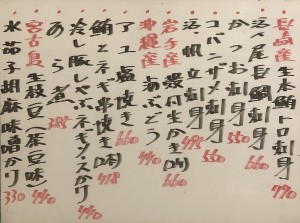 長崎産 生本鮪トロ刺身 790
活〆尾長鯛刺身
かつお刺身 550
コバンザメ刺身 550
活〆帆立刺身 495
岩手産 殻付生かき(1ヶ)
沖縄産 海ぶどう 440
アユ塩焼き 660
鮪とネギ串焼き(1本) 418
冷し豚しゃぶネギダレがけ 440
あら煮 385
宮古島 生枝豆(茶豆味) 440
水茄子胡麻味噌がけ 330